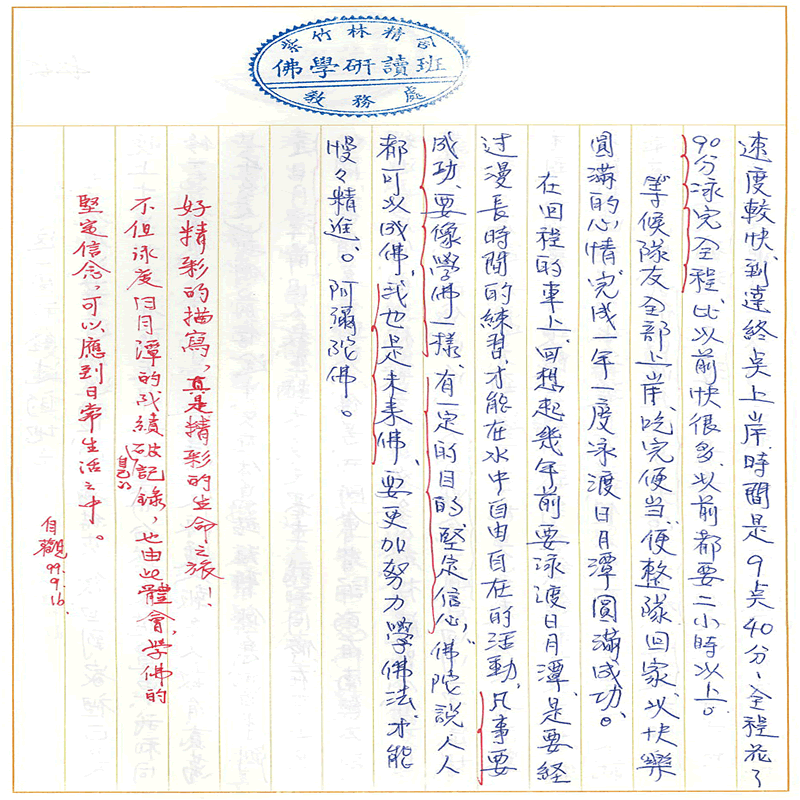 紫竹林精舍
佛學研讀班
教務處
速度較快、到達終點上岸、時間是9點40分、全程花了
90分泳完全程、比以前快很多、以前都要二小時以上。
等候隊友全部上岸、吃完便當、便整隊回家、以快樂
圓滿的心情、完成一年一度泳渡日月潭圓滿成功。
在回程的車上、回想起幾年前要泳渡日月潭、是要經
过漫長時間的練習、才能在水中自由自在的活動、凡事要
成功、要像學佛一樣、有一定的目的、堅定信心、佛陀說人人
都可以成佛、我也是未來佛、要更加努力學佛法、才能
慢々精進。阿彌陀佛。
好精彩的描寫，真是精彩的生命之旅！
不但泳度日月潭的成績破自己的記錄，也由此體會，學佛的
堅定信念，可以應到日常生活之中。
自觀
99.9.16.